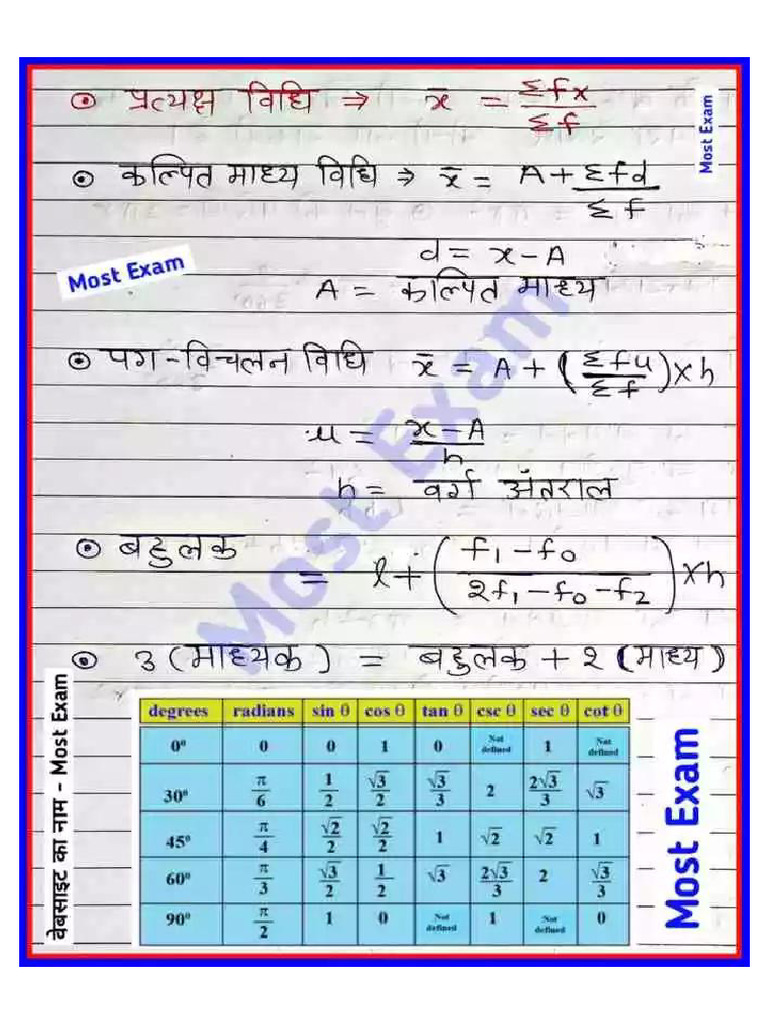 ⊙ प्रत्यक्ष विधि ⇒ x̄ = Σfx / Σf
Most Exam
⊙ कल्पित माध्य विधि ⇒ x̄ = A + Σfd / Σf
d = x - A
Most Exam
A = कल्पित माध्य
⊙ पग-विचलन विधि x̄ = A + (Σfu / Σf) × h
u = x - A / h
h = वर्ग अंतराल
⊙ बहुलक = l + (f₁ - f₀ / 2f₁ - f₀ - f₂) × h
⊙ 3 (माध्यक) = बहुलक + 2 (माध्य)
Most Exam
वेबसाइट का नाम - Most Exam
degrees radians sin θ cos θ tan θ csc θ sec θ cot θ
0° 0 0 1 0 Not defined 1 Not defined
30° π/6 1/2 √3/2 √3/3 2 2√3/3 √3
45° π/4 √2/2 √2/2 1 √2 √2 1
60° π/3 √3/2 1/2 √3 2√3/3 2 √3/3
90° π/2 1 0 Not defined 1 Not defined 0
Most Exam